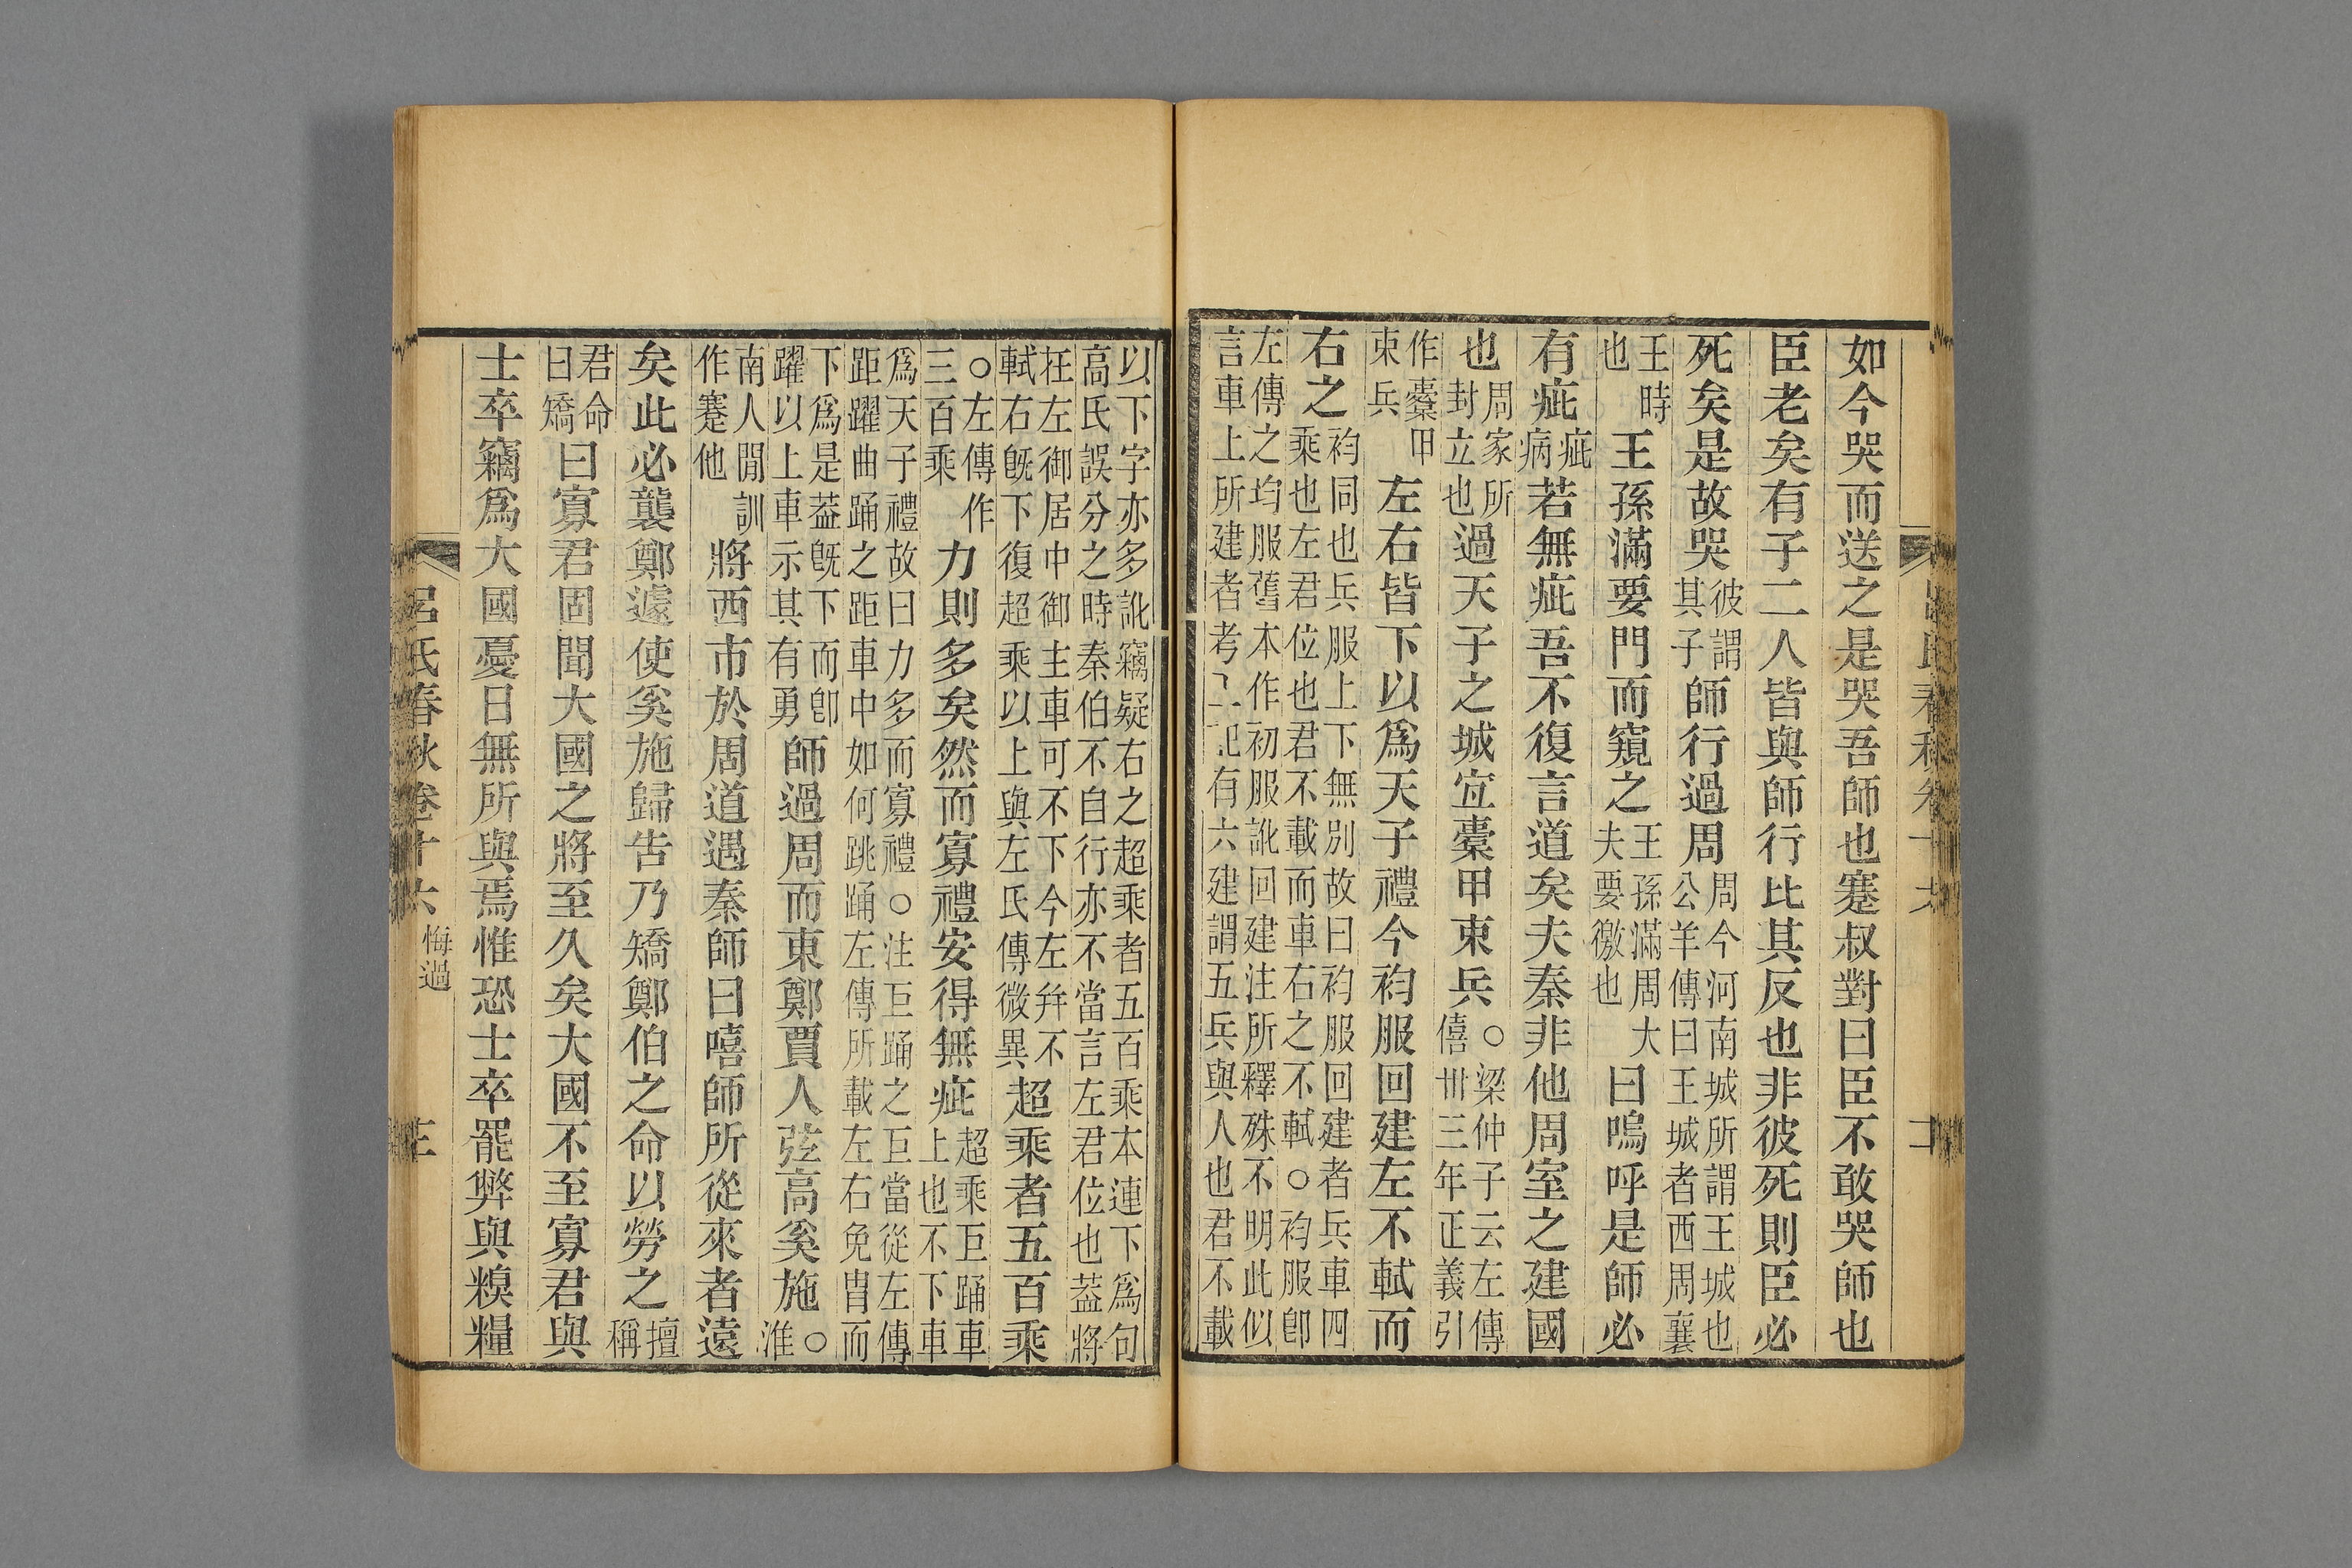 如今哭而送之是哭吾師也蹇叔對曰臣不敢哭師也
臣老矣有子二人皆與師行比其反也非彼死則臣必
死矣是故哭彼謂其子師行過周周今河南城所謂王城也公羊傳曰王城者西周襄
王時也王孫滿要門而窺之王孫滿周大夫要徼也曰嗚呼是師必
有疵疵病若無疵吾不復言道矣夫秦非他周室之建國
也周家所封立也過天子之城宜櫜甲束兵○梁仲子云左傳僖卅三年正義引
作櫜甲束兵左右皆下以爲天子禮今袀服回建左不軾而
右之袀同也兵服上下無別故曰袀服回建者兵車四乘也左君位也君不載而車右之不軾○袀服卽
左傳之均服舊本作初服訛回建注所釋殊不明此似
言車上所建者考記有六建謂五兵與人也君不載
以下字亦多訛竊疑右之超乘者五百乘本連下爲句
高氏誤分之時秦伯不自行亦不當言左君位也葢將
在左御居中御主車可不下今左幷不
軾右旣下復超乘以上與左氏傳微異超乘者五百乘
○左傳作三百乘力則多矣然而寡禮安得無疵超乘巨踊車上也不下車
爲天子禮故曰力多而寡禮○注巨踊之巨當從左傳
距躍曲踊之距車中如何跳踊左傳所載左右免胄而
下爲是葢旣下而卽躍以上車示其有勇師過周而東鄭賈人弦高奚施○淮
南人閒訓作蹇他將西市於周道遇秦師曰嘻師所從來者遠
矣此必襲鄭遽使奚施歸告乃矯鄭伯之命以勞之擅稱
君命曰矯曰寡君固聞大國之將至久矣大國不至寡君與
士卒竊爲大國憂日無所與焉惟恐士卒罷弊與糗糧
呂氏春秋卷十六 悔過 三